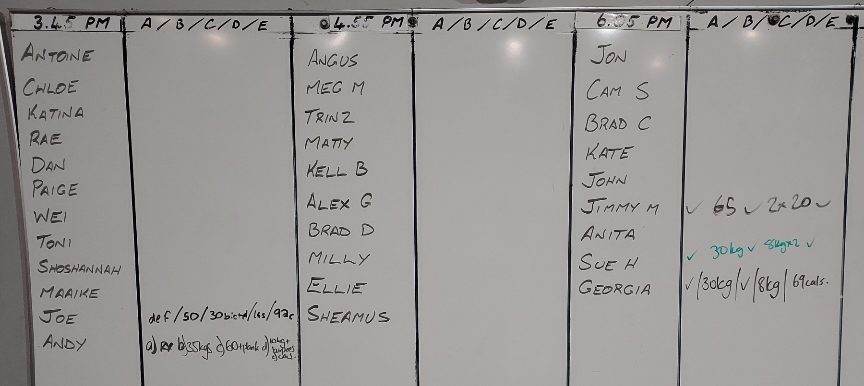 3.45 PM A/B/C/D/E 4.55 PM A/B/C/D/E 6.05 PM A/B/C/D/E
ANTOINE
CHLOE
KATINA
RAE
DAN
PAIGE
WEI
TONI
SHOSHANNAH
MAAIKE
JOE def/50/30
ANDY a) b)35kgs c)60+plank d)
ANGUS
MEG M
TRINZ
MATTY
KELL B
ALEX G
BRAD D
MILLY
ELLIE
SHEAMUS
JON
CAM S
BRAD C
KATE
JOHN
JIMMY M ✓ 65 ✓ 2x20 ✓
ANITA
SUE H ✓ 30kg ✓ 8kgx2 ✓
GEORGIA ✓/30kg/✓/8kg/69cals.